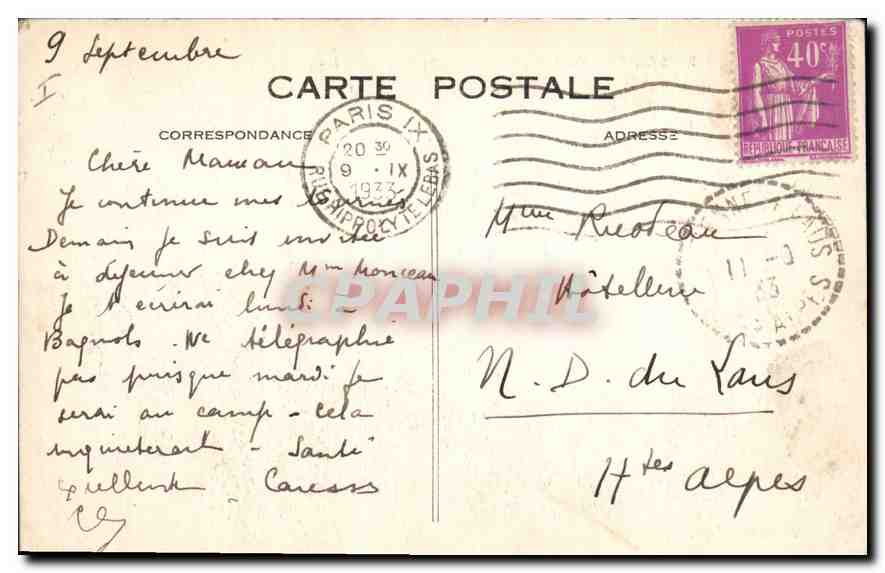 9 Septembre
I
CARTE POSTALE
CORRESPONDANCE
ADRESSE
POSTES
40c
REPUBLIQUE FRANCAISE
PARIS IX
20 30
9 . IX
1933
RUE HIPPOLYTE LEBAS
11 -9
33
Chère Maman
Je continue mes
Demain je suis invitée
à déjeuner chez Mme Monceau
Je t'écrirai lundi -
Bagnols. Ne télégraphie
pas puisque mardi je
serai au camp - cela
inquièterait - Santé
excellente - Caresses
Mme Ricoteau
Hôtellerie
N. D. du Laus
Htes alpes
CPAPHIL